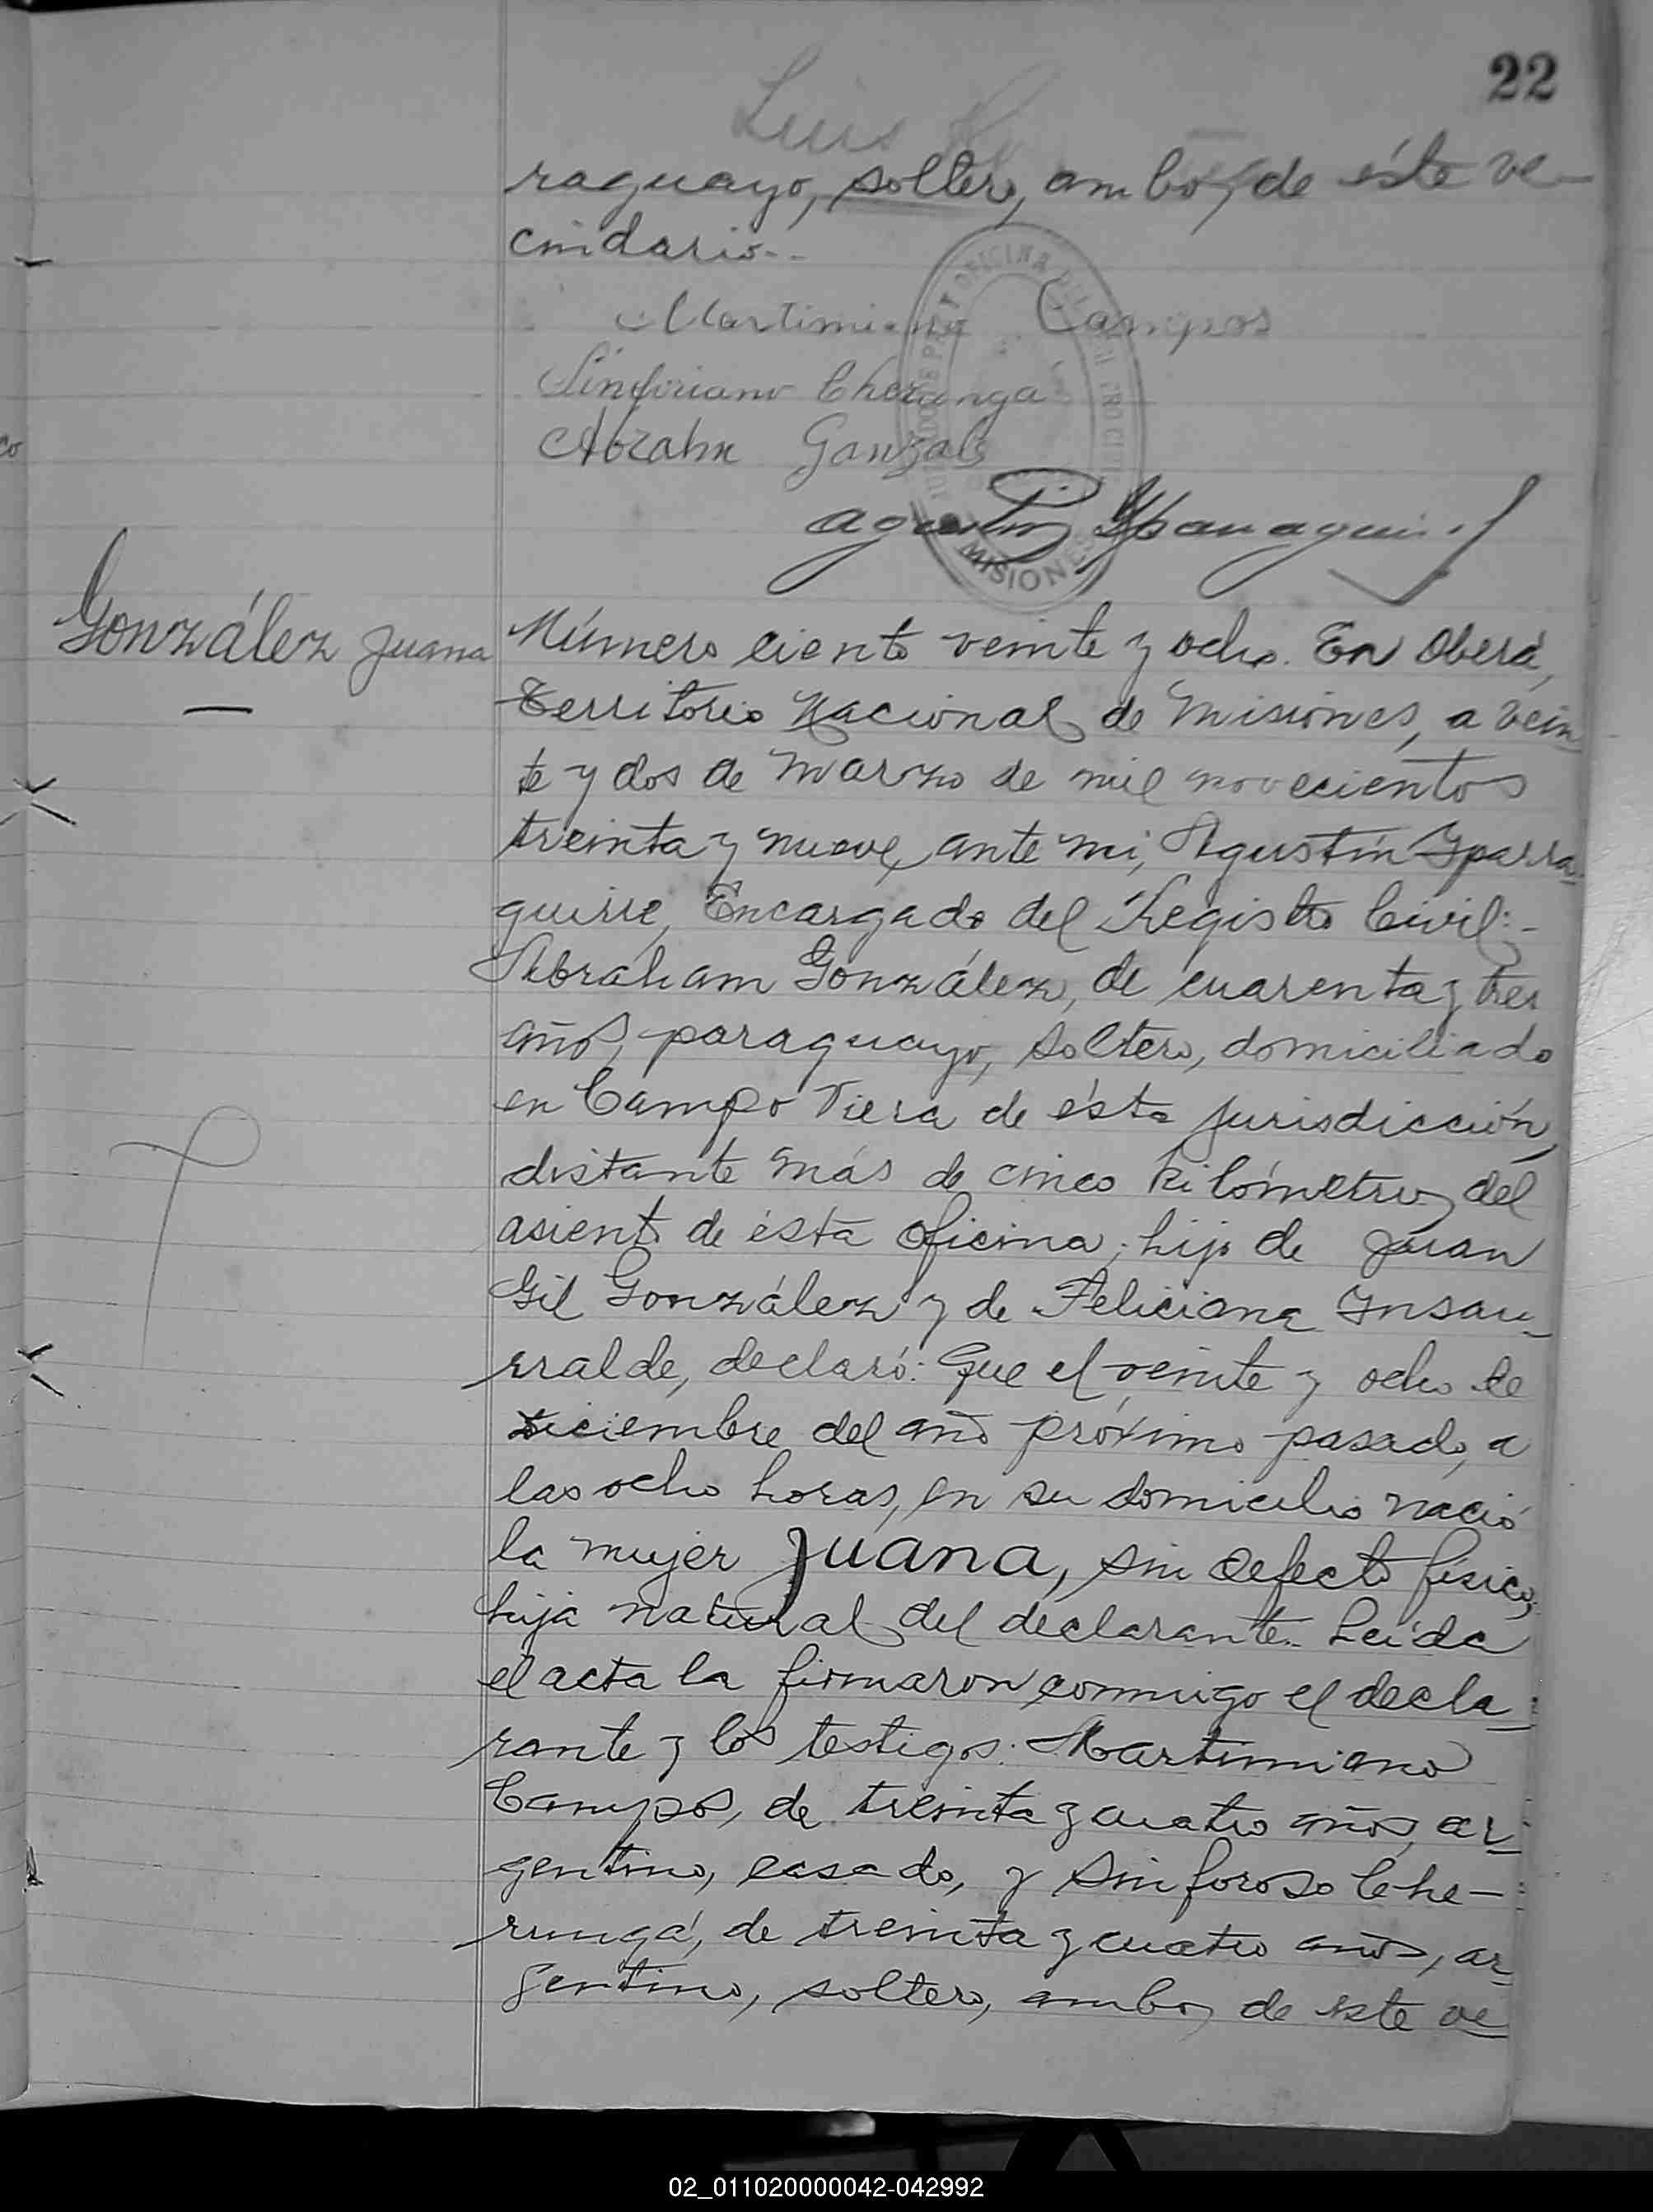 22
Luis
raguayo, soltero, ambos de éste ve-
cindario.-
Martimiano Campos
Sinforiano Cherunga
Abrahn Gonzals
OFICINA DEL
MISIONES
González Juana
Número ciento veinte y ocho. En Oberá,
Territorio Nacional de Misiones, a vein
te y dos de marzo de mil novecientos
treinta y nueve, ante mi, Agustín Yparra-
guirre, Encargado del Registro Civil:-
Abraham González, de cuarenta y tres
años, paraguayo, soltero, domiciliado
en Campo Viera de ésta jurisdicción,
distante más de cinco kilómetros del
asiento de ésta oficina, hijo de Juan
Gil González y de Feliciana Ynsau-
rralde, declaró: Que el veinte y ocho de
diciembre del año próximo pasado, a
las ocho horas, en su domicilio nació
la mujer Juana, sin defecto físico,
hija natural del declarante. Leída
el acta la firmaron conmigo el decla-
rante y los testigos: Martimiano
Campos, de treinta y cuatro años, ar-
gentino, casado, y Sinforoso Che-
rungá, de treinta y cuatro años, ar-
gentino, soltero, ambos de éste ve
02_011020000042-042992